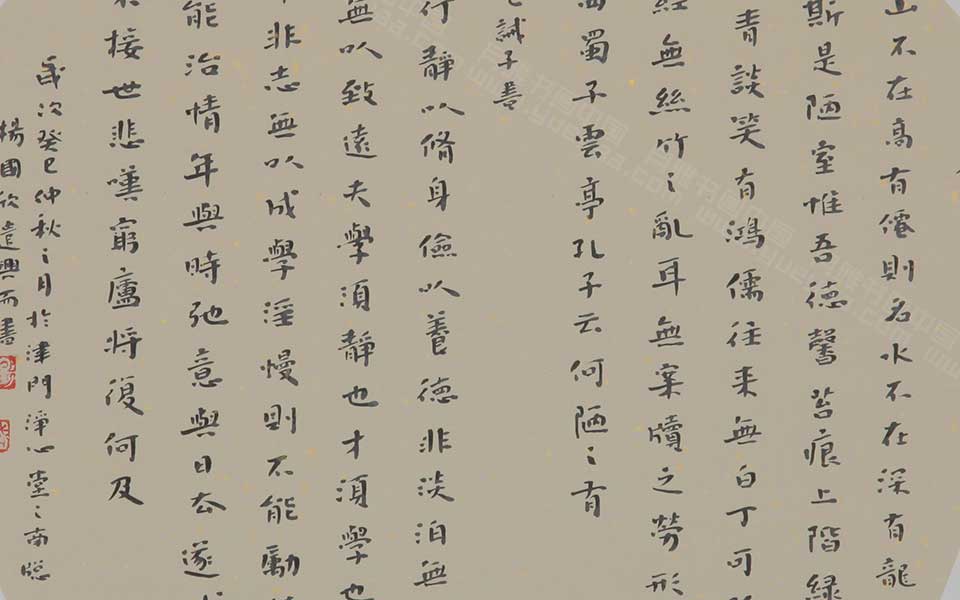 山不在高有僊則名水不在深有龍
斯是陋室惟吾德馨苔痕上階緑
青談笑有鴻儒往来無白丁可
經無絲竹之亂耳無案牘之勞形
蜀子雲亭孔子云何陋之有
誡子書
行靜以脩身儉以養德非淡泊無
無以致遠夫學須靜也才須學也
非志無以成學淫慢則不能勵
能治情年與時弛意與日去遂
接世悲嘆窮廬將復何及
歲次癸巳仲秋之月於津門淨心堂之南窗
楊國欣遣興而書